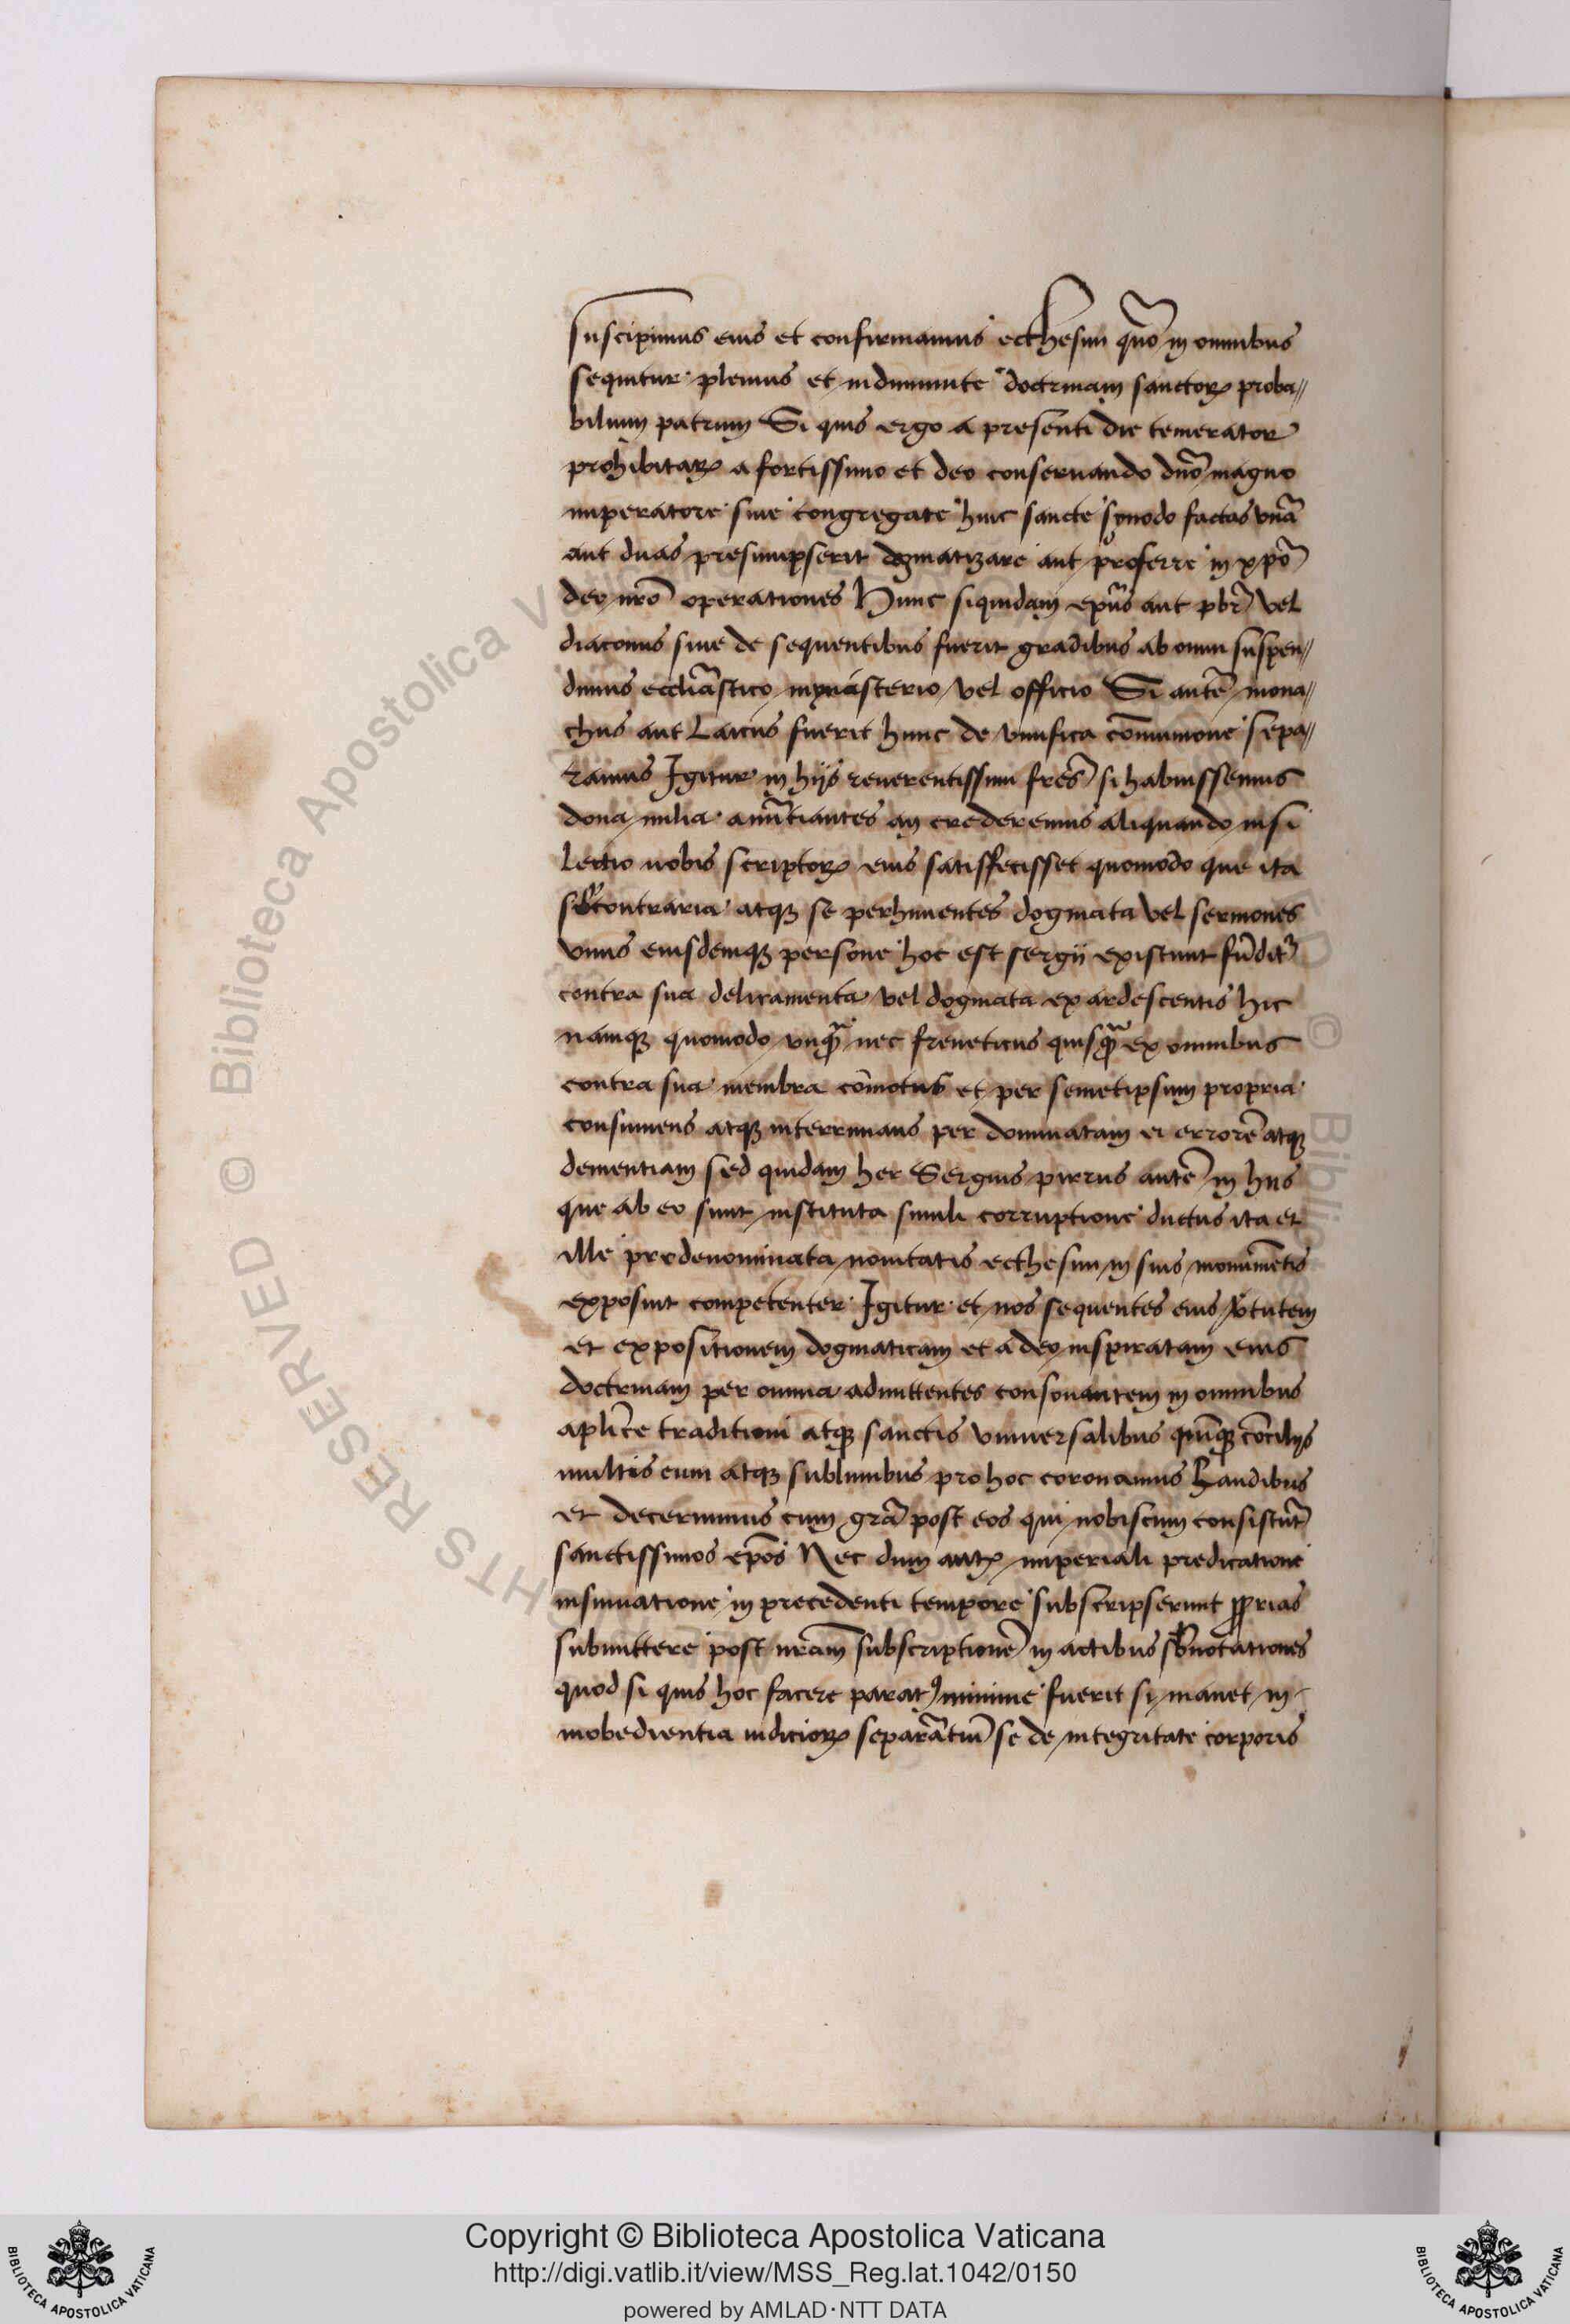 Suscipimus eius et confirmamus ecthesim quō in omnibus
sequitur plenius et indiminute doctrinam sanctorꝝ proba//
bilium patrum Si quis ergo a presenti die temerator
prohibitarꝝ a fortissimo et deo conseruando dnō magno
imperatore siue congregate huic sancte synodo factas vnā
aut duas presumpserit dogmatizare aut proferre in xpō
deo nrō operationes Hunc siquidam epūs aut pbr̄ vel
diaconus siue de sequentibus fuerit gradibus ab omni suspen//
dimus eccliāstico mynasterio vel officio Si autē mona//
chus aut Laicus fuerit hunc de viuifica cōmunione sepa//
ramus Igitur in hijs reuerentissimi frēs si habuissemus
dona milia anūtiantes an crederemus aliquando nisi
Lectio nobis scriptorꝝ eius satisfecisset quomodo que ita
contraria atqꝫ se perhimentes dogmata vel sermones
vnius eiusdemqꝫ persone hoc est sergij existunt fūditꝰ
contra sua deliramenta vel dogmata ex ardescentis hic
namqꝫ quomodo vnqꝫ̄ nec freneticus quisqꝫ̄ ex omnibus
contra sua membra cōmotus et per semetipsum propria
consumens atqꝫ interrimans per dominatam ei errorē atqꝫ
dementiam sed quidam hec Sergius pirrus autē in hiis
que ab eo sunt instituta simili corruptione ductus ita et
ille predenominata nouitatis ecthesim in suis monumētis
exposuit competenter Igitur et nos sequentes eius v̄tutem
et expositionem dogmaticam et a deo inspiratam eius
doctrinam per omnia admittentes consonantem in omnibus
aplīce traditioni atqꝫ sanctis vniuersalibus quīqꝫ cōcilijs
multis eum atqꝫ sublimibus pro hoc coronamus Laudibus
et decernimus cum grā post eos qui nobiscum consistūt
sanctissimos epōs Nec dum autꝫ imperiali predicatione
insinuatione in precedenti tempore subscripserunt ꝓprias
submittere post nrām subscriptionē in actibus sbnotationes
quod si quis hoc facere paratꝰ minime fuerit si manet in
inobedientia iudiciorꝝ separātiū se de integritate corporis
Copyright © Biblioteca Apostolica Vaticana
http://digi.vatlib.it/view/MSS_Reg.lat.1042/0150
powered by AMLAD·NTT DATA